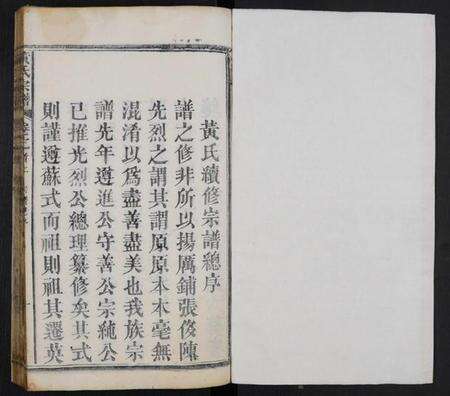 黃氏續修宗譜總序
譜之修非所以揚厲鋪張俊陳
先烈之謂其謂原原本本毫無
混淆以爲盡善盡美也我族宗
譜先年遊進公守善公宗純公
已推光烈公總理纂修矣其式
則謹遵蘇式而祖則祖其遷英
黃氏宗譜